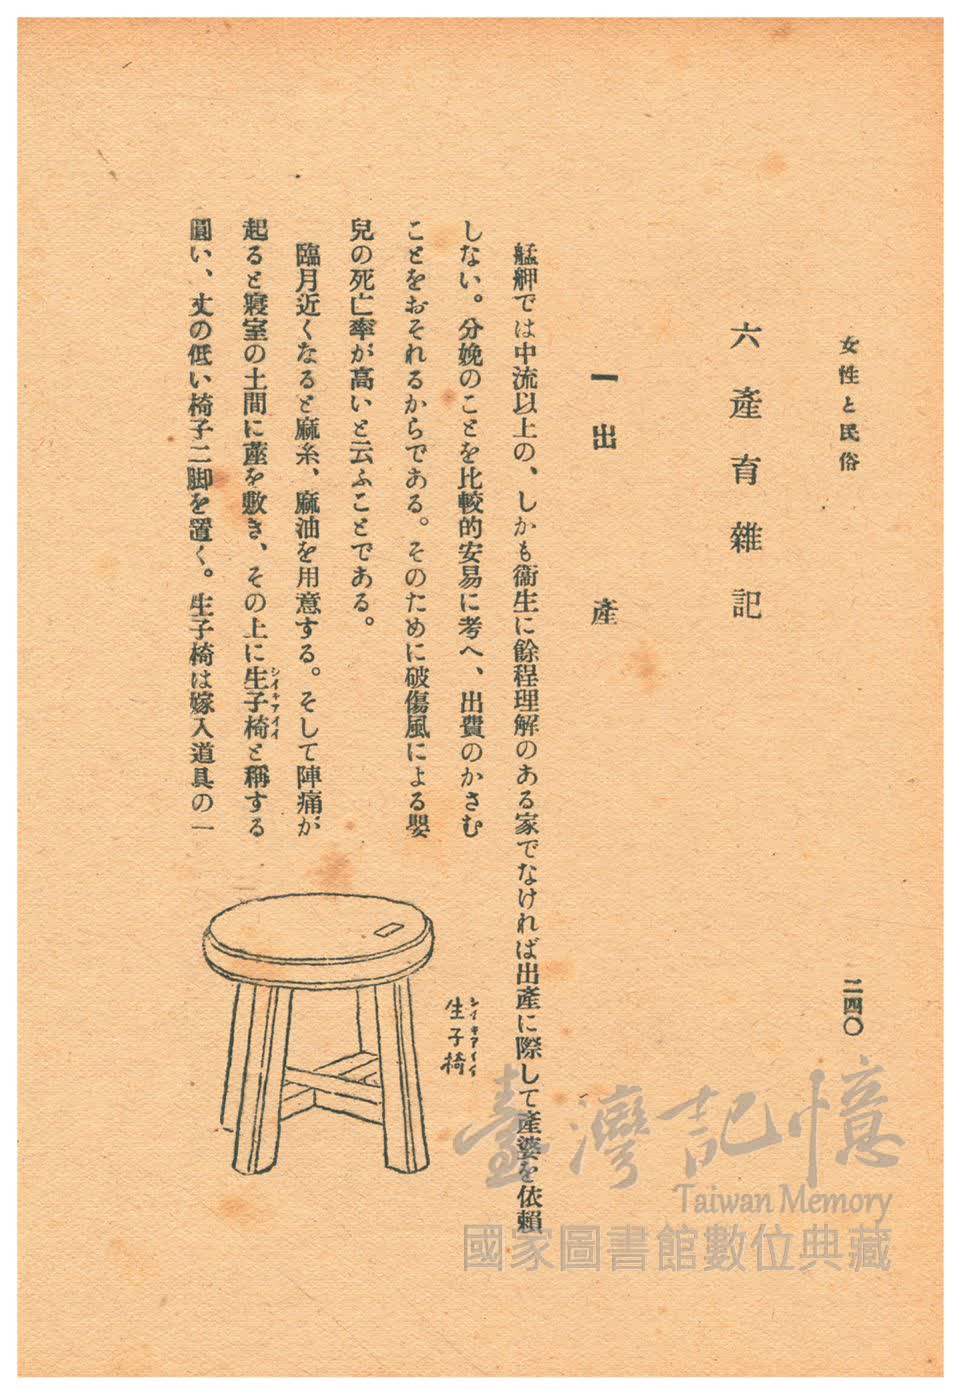 女性と民俗
二四〇
六 產育雜記
一 出產
艋舺では中流以上の、しかも衞生に餘程理解のある家でなければ出產に際して產婆を依賴
しない。分娩のことを比較的安易に考へ、出費のかさむ
ことをおそれるからである。そのために破傷風による嬰
兒の死亡率が高いと云ふことである。
臨月近くなると麻糸、麻油を用意する。そして陣痛が
起ると寢室の土間に蓙を敷き、その上に生子椅と稱する
シイキアイイ
圓い、丈の低い椅子二脚を置く。生子椅は嫁入道具の一
シイキアイイ
生子椅
臺灣記憶
Taiwan Memory
國家圖書館數位典藏